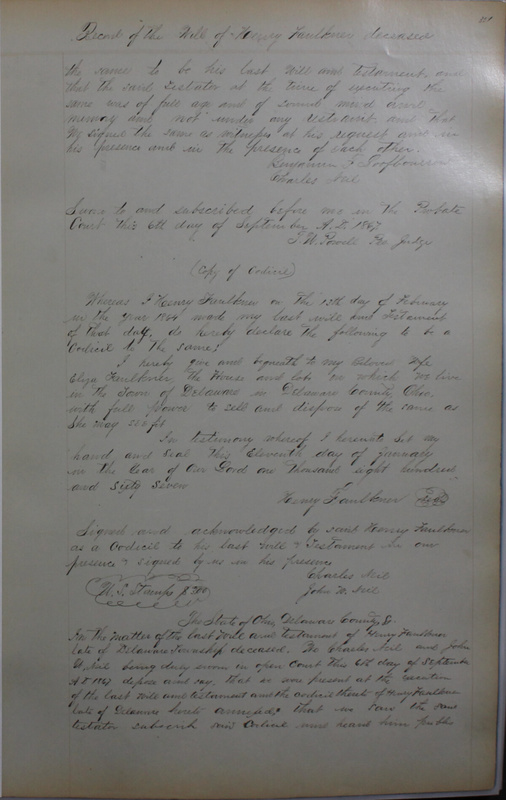 Record of the Will of Henry Faulkner deceased
the same to be his last Will and testament, and
that the said Testator at the time of executing the
same was of full age and of sound mind and
memory and not under any restraint and that
We signed the same as witnesses at his request and in
his presence and in the presence of each other.
Benjamin F Loofbourrow
Charles Neil
Sworn to and subscribed before me in the Probate
Court this 6th day of September A.D. 1867
T. W. Powell Pro Judge
(Copy of Codicil)
Whereas I Henry Faulkner on the 13th day of February
in the year 1864 made my last will and Testament
of that day, do hereby declare the following to be a
Codicil to the same:
I hereby give and bequeath to my Beloved Wife
Eliza Faulkner, the House and lots on which we live
in the Town of Delaware in Delaware County, Ohio.
with full power to sell and dispose of the same as
She may see fit
In testimony whereof I hereunto Set my
hand and Seal this Eleventh day of January
in the Year of Our Lord one thousand eight hundred
and Sixty Seven
Henry Faulkner Seal
Signed and acknowledged by said Henry Faulkner
as a Codicil to his last Will & Testament in our
presence & signed by us in his presence
Charles Neil
U. S. Stamps John W. Neil
The State of Ohio, Delaware County, &.
In the matter of the last Will and testament of Henry Faulkner
late of Delaware Township deceased. We Charles Neil and John
W. Neil being duly sworn in open Court this 6th day of September
A D 1867 depose and say, that we were present at the execution
of the last will and testament and the codicil thereto of Henry Faulkner
late of Delaware hereto annexed: that we saw the said
testator subscribe said Codicil and heard him publish